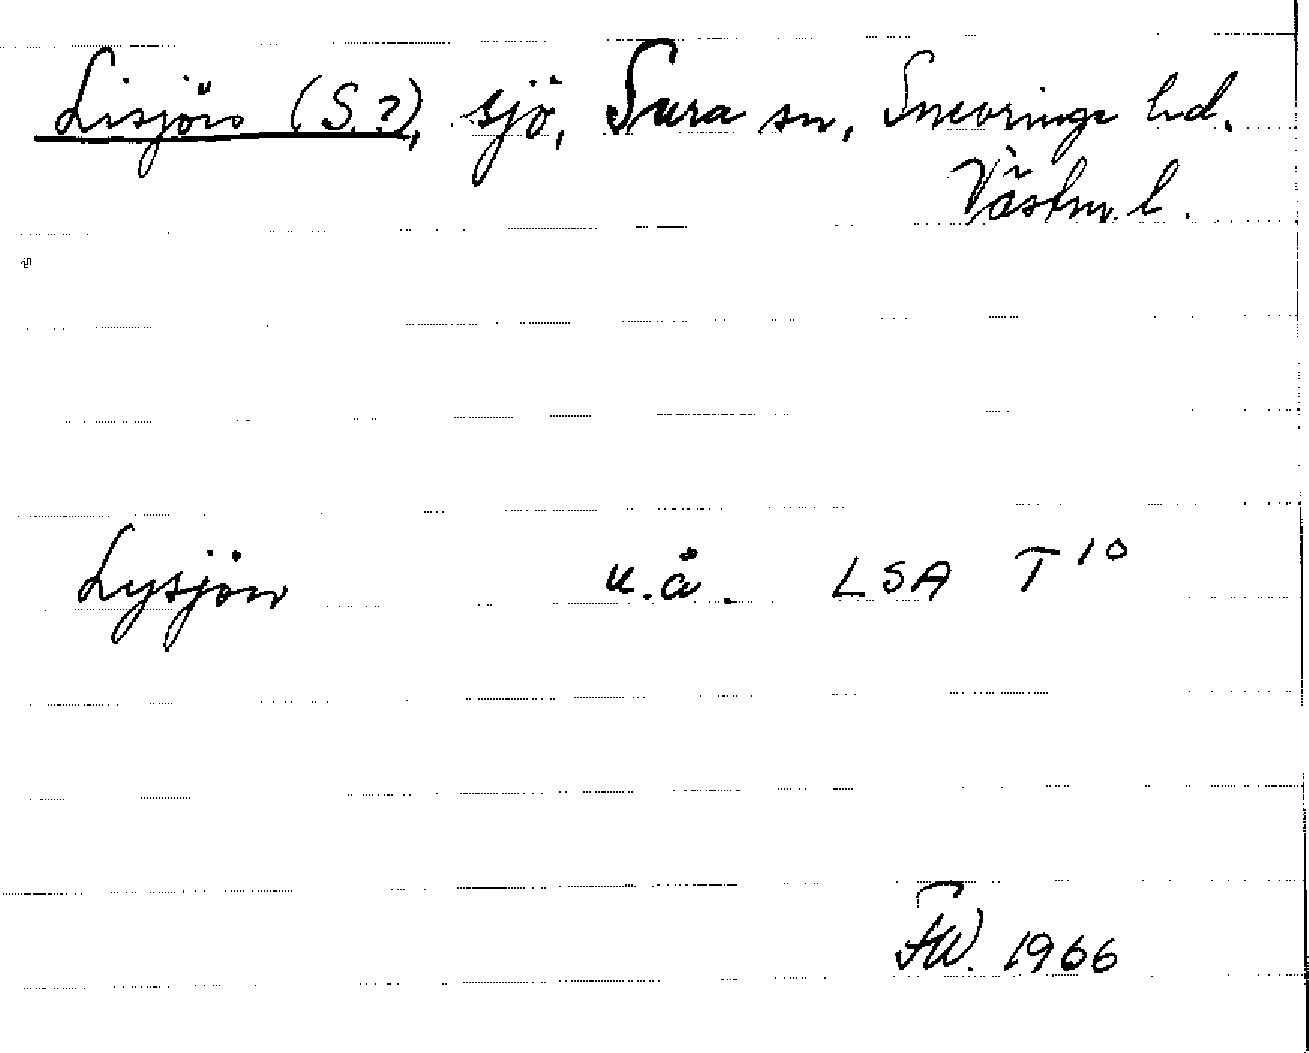 Lisjön (S.?), sjö, Sura sn, Snevringe hd.
Västm. l.
Lysjön u.å. LSA T 10
FW. 1966